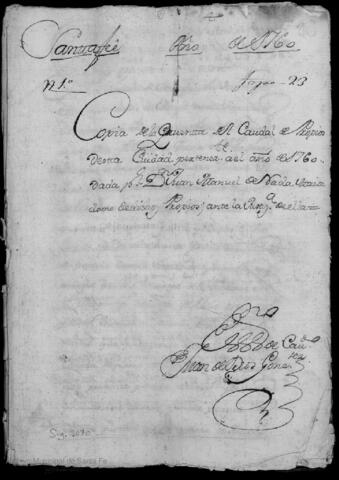 Santa fé Año de 1760
N 1º fojas 23
Copia de la Quenta del Caudal de Propios
desta Ciudad pertenez.te al año de 1760
dada pr Dn Juan Manuel de Nada Maior
domo de dichos Propios, ante la
de Cau
Juan de Dios Gomez
Sig. 2070
Municipal de Santa Fe